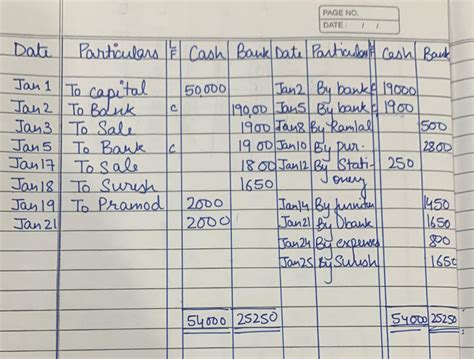 PAGE NO.
DATE: / /
Date Particulars LF Cash Bank Date Particulars F Cash Bank
Jan 1 To capital 50,000 Jan2 By bank C 19000
Jan 2 To Bank C 190,00 Jan5 By bank C 1900
Jan3 To Sale 1900 Jan8 By Ramlal 500
Jan 5 To Bank C 19 00 Jan10 By pur. 2800
Jan17 To Sale 18 00 Jan12 By Stati- 250
Jan18 To Suresh 1650 onery
Jan 19 To Pramod 2000 Jan14 By furnitur 1450
Jan 21 2000 Jan21 By bank 1650
Jan24 By expenses 800
Jan25 By Suresh 1650
54000 25250 54000 25250